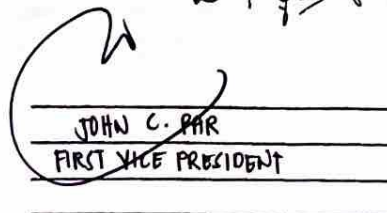 JOHN C. PAR
FIRST VICE PRESIDENT